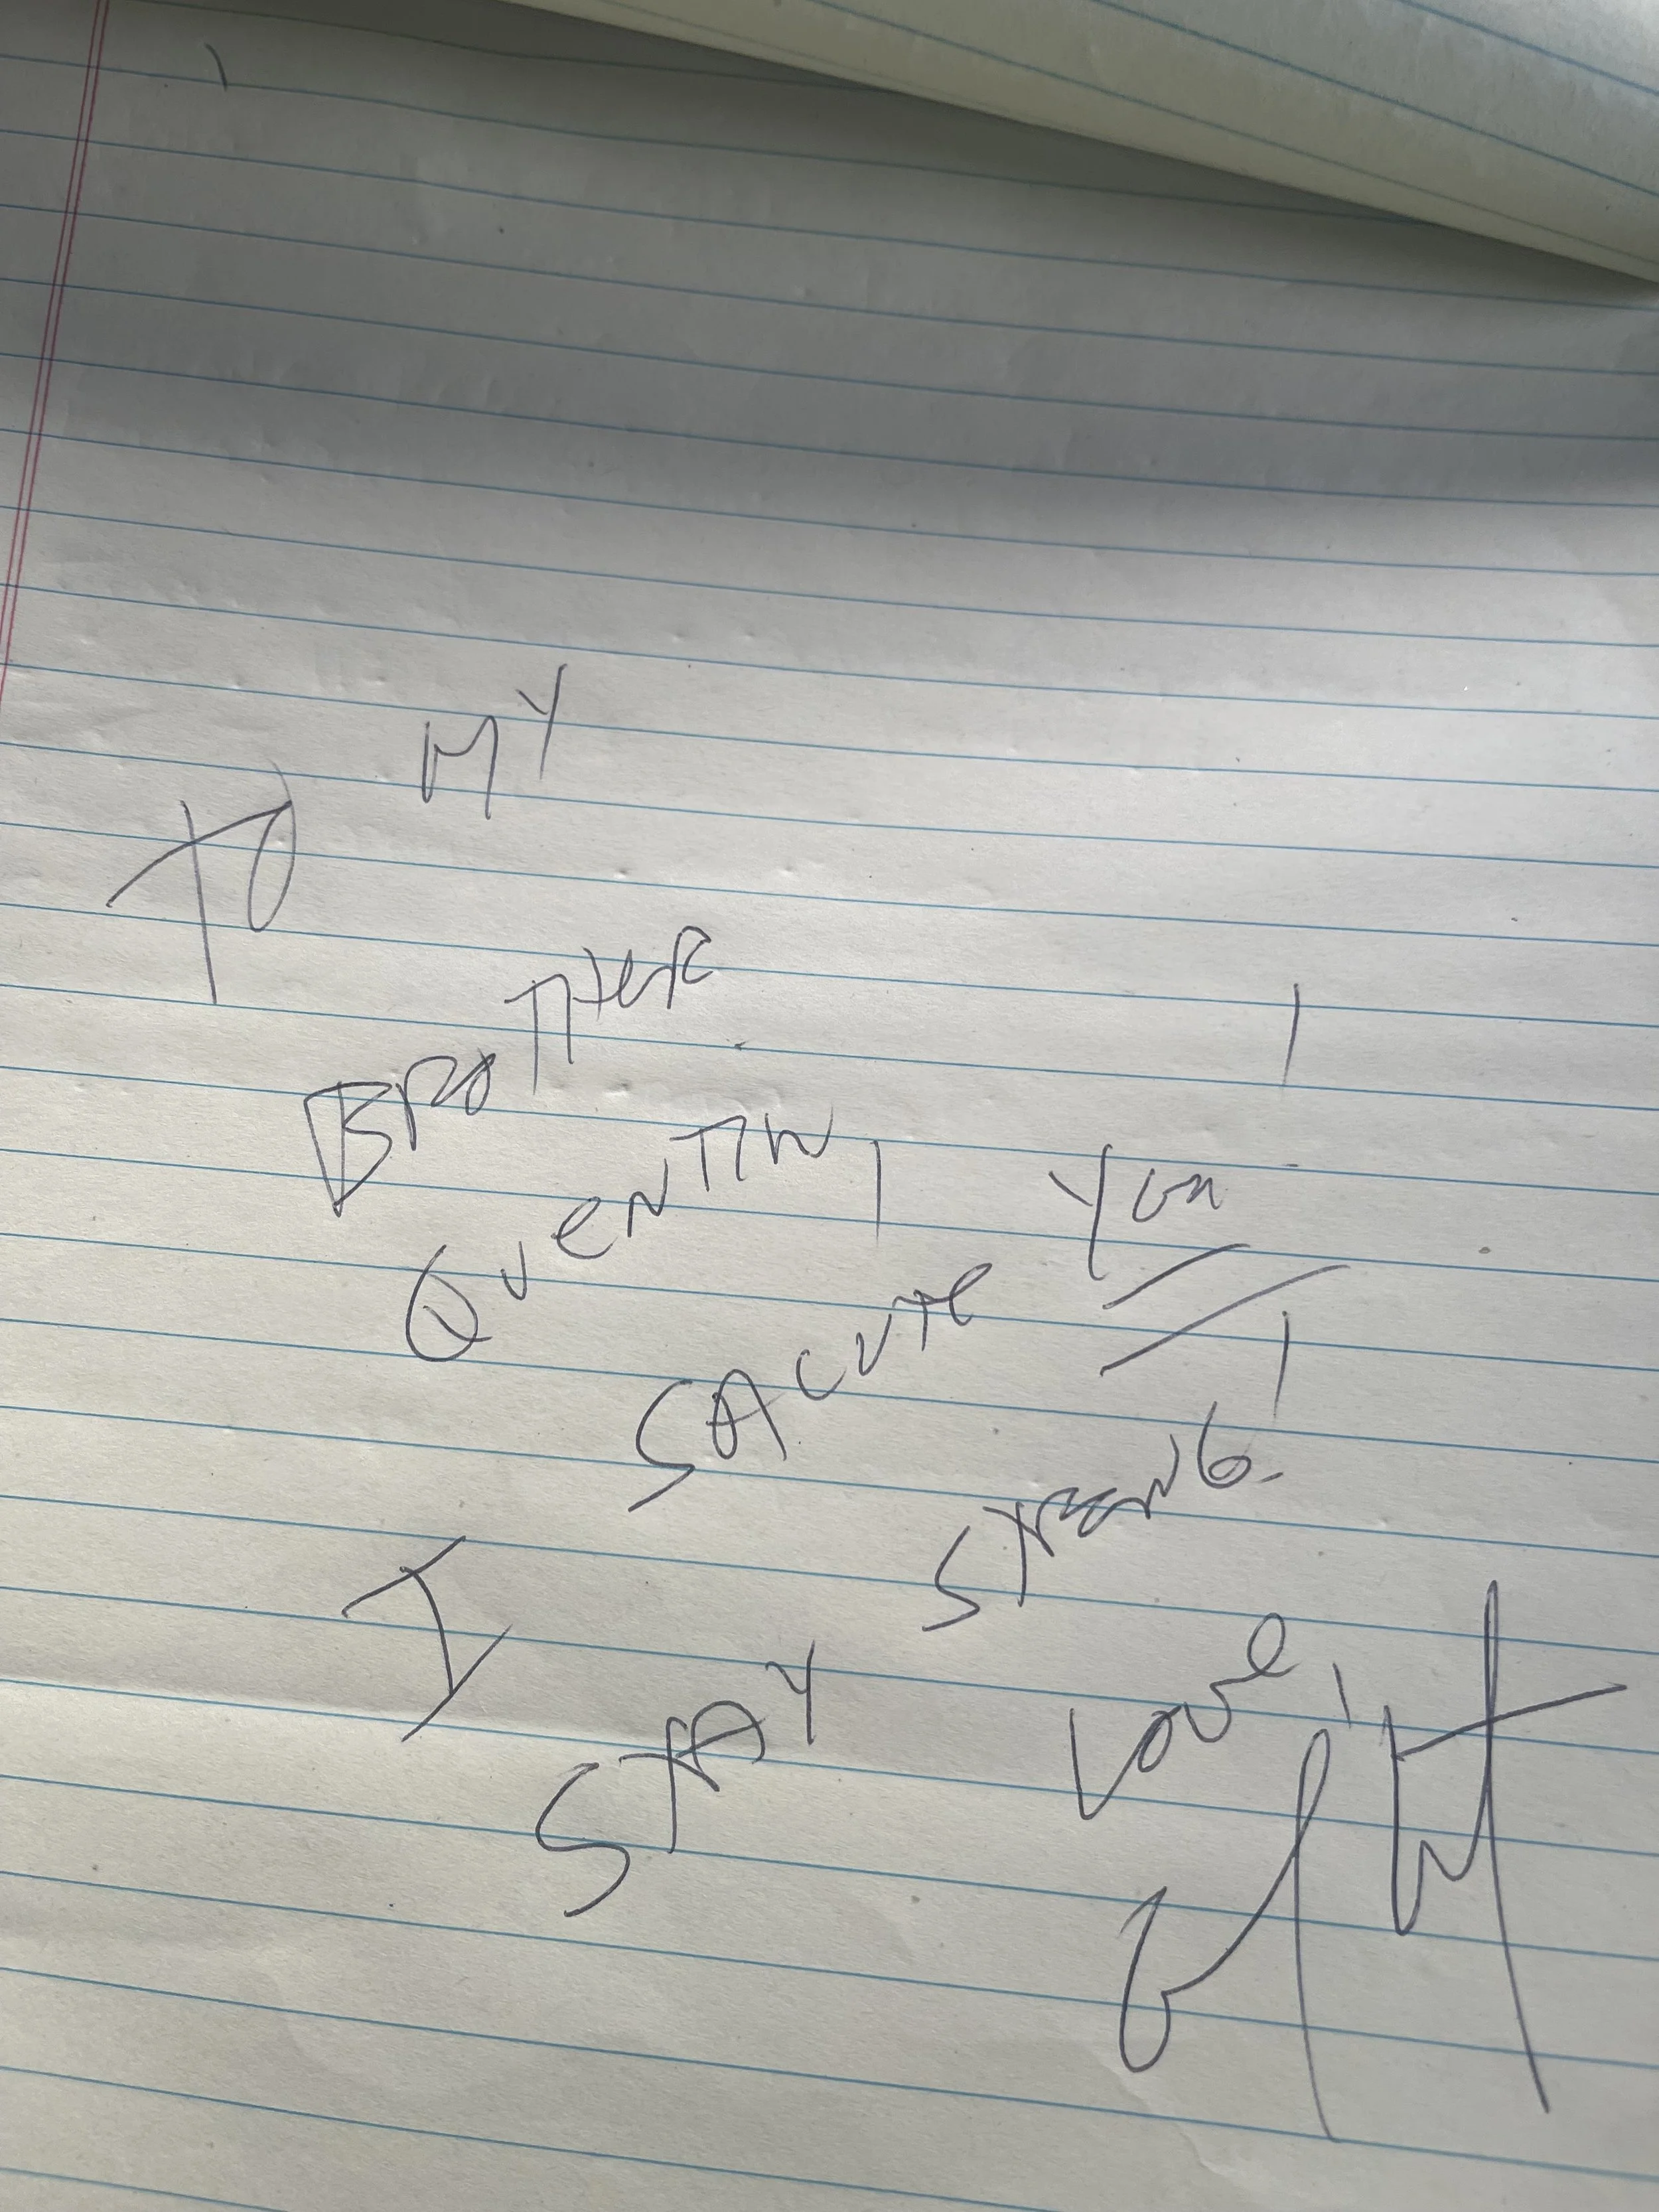 TO MY
BROTHER
QUENTIN,
I SALUTE YOU!
STAY STRONG!
LOVE,